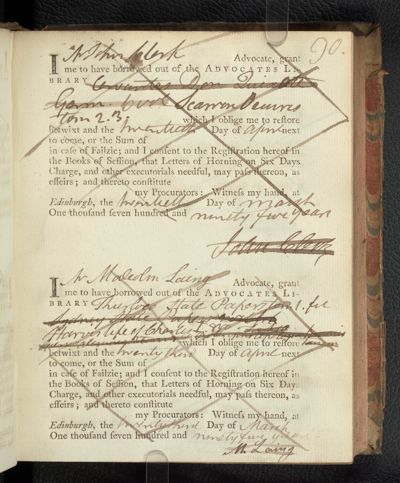 90.
I Mr John Clerk Advocate, grant
me to have borrowed out of the ADVOCATES LI-
BRARY Don Quixote
Scarron Oeuvres
tom 2.3. which I oblige me to restore
betwixt and the twentieth Day of April next
to come, or the Sum of
in case of Failzie; and I consent to the Registration hereof in
the Books of Session, that Letters of Horning on Six Days
Charge, and other executorials needful, may pass thereon, as
effeirs; and thereto constitute
my Procurators: Witness my hand, at
Edinburgh, the twentieth Day of March
One thousand seven hundred and ninety five years
John Clerk
I Mr Malcolm Laing Advocate, grant
me to have borrowed out of the ADVOCATES LI-
BRARY Thurloe State Papers
Harris life of Charles
which I oblige me to restore
betwixt and the twenty third Day of April next
to come, or the Sum of
in case of Failzie; and I consent to the Registration hereof in
the Books of Session, that Letters of Horning on Six Days
Charge, and other executorials needful, may pass thereon, as
effeirs; and thereto constitute
my Procurators: Witness my hand, at
Edinburgh, the twenty third Day of March
One thousand seven hundred and ninety five years
M. Laing